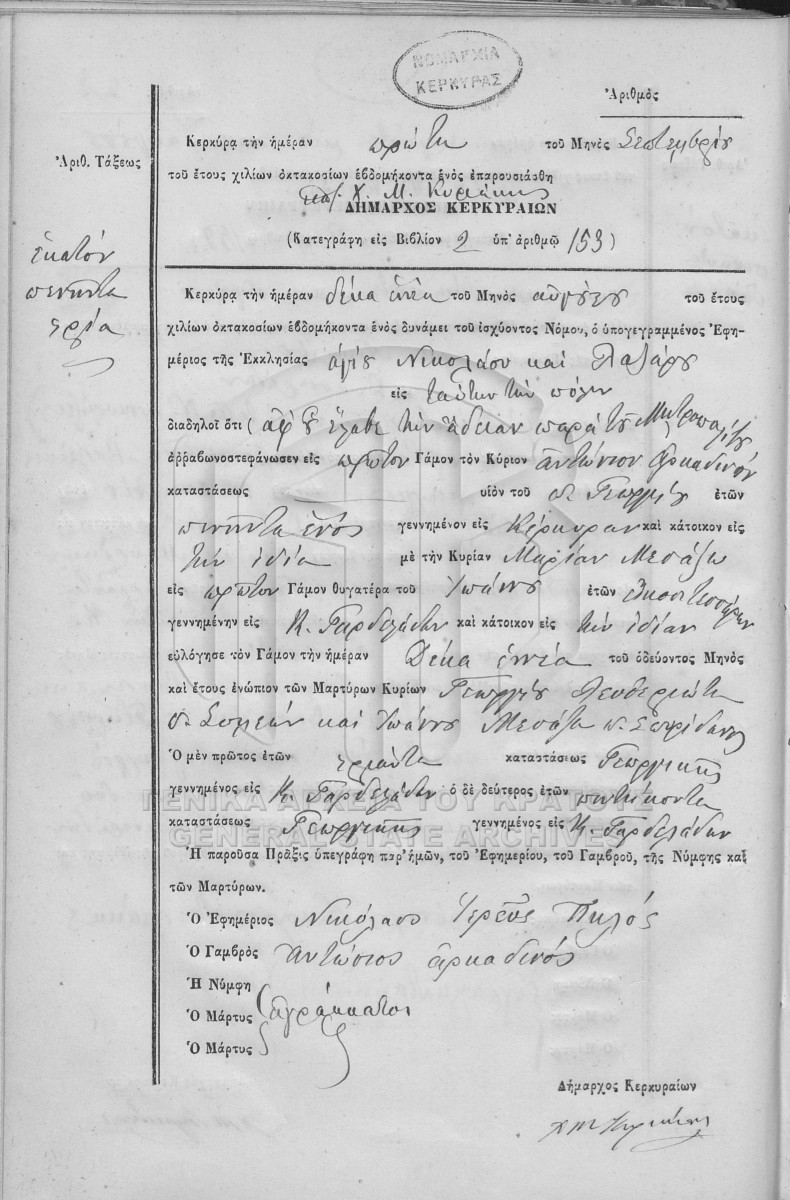 ΝΟΜΑΡΧΙΑ
ΚΕΡΚΥΡΑΣ
Ἀριθμὸς
Κερκύρα τὴν ἡμέραν πρώτη τοῦ Μηνὸς Σεπτεμβρίου
Ἀριθ. Τάξεως
τοῦ ἔτους χιλίων ὀκτακοσίων ἑβδομήκοντα ἑνὸς ἐπαρουσιάσθη
Χ. Μ. Κυριάκης
ΔΗΜΑΡΧΟΣ ΚΕΡΚΥΡΑΙΩΝ
(Κατεγράφη εἰς Βιβλίον 2 ὑπ' ἀριθμῷ 153)
ἑκατόν
πενῆντα
τρία
Κερκύρᾳ τὴν ἡμέραν δέκα ἐννέα τοῦ Μηνὸς αὐγούστου τοῦ ἔτους
χιλίων ὀκτακοσίων ἑβδομήκοντα ἑνὸς δυνάμει τοῦ ἰσχύοντος Νόμου, ὁ ὑπογεγραμμένος Ἐφη-
μέριος τῆς Ἐκκλησίας ἁγίου Νικολάου καὶ Λαζάρου
εἰς ταύτην τὴν πόλιν
διαδηλοῖ ὅτι (ἀφ' οὗ ἔλαβε τὴν ἄδειαν παρὰ τοῦ Μητροπολίτου
ἀῤῥαβωνοστεφάνωσεν εἰς πρῶτον Γάμον τὸν Κύριον Ἀντώνιον Ἀρκαδινόν
καταστάσεως υἱὸν τοῦ Γεωργίου ἐτῶν
πενῆντα ἑνός γεννημένον εἰς Κέρκυραν καὶ κάτοικον εἰς
τὴν ἰδία μὲ τὴν Κυρίαν Μαρίαν Μεσάζου
εἰς πρῶτον Γάμον θυγατέρα τοῦ Ἰωάννου ἐτῶν εἰκοσιτεσσάρων
γεννημένην εἰς Κ. Γαρδελάδων καὶ κάτοικον εἰς τὴν ἰδίαν
εὐλόγησε τὸν Γάμον τὴν ἡμέραν Δέκα ἐννέα τοῦ ὁδεύοντος Μηνὸς
καὶ ἔτους ἐνώπιον τῶν Μαρτύρων Κυρίων Γεωργίου Λευθεριώτη
καὶ Ἰωάννου Μεσάζου π. Σπυρίδωνος
Ὁ μὲν πρῶτος ἐτῶν τριάντα καταστάσεως Γεωργικῆς
γεννημένος εἰς Κ. Γαρδελάδων ὁ δὲ δεύτερος ἐτῶν πεντήκοντα
ΓΕΝΙΚΑ ΑΡΧΕΙΑ ΤΟΥ ΚΡΑΤΟΥΣ
καταστάσεως Γεωργικῆς γεννημένος εἰς Κ. Γαρδελάδων
GENERAL STATE ARCHIVES
Ἡ παροῦσα Πρᾶξις ὑπεγράφη παρ' ἡμῶν, τοῦ Ἐφημερίου, τοῦ Γαμβροῦ, τῆς Νύμφης καὶ
τῶν Μαρτύρων.
Ὁ Ἐφημέριος Νικόλαος Ἱερεὺς Πηλός
Ὁ Γαμβρὸς Ἀντώνιος ἀρκαδινός
Ἡ Νύμφη
Ὁ Μάρτυς ἀγράμματοι
Ὁ Μάρτυς
Δήμαρχος Κερκυραίων